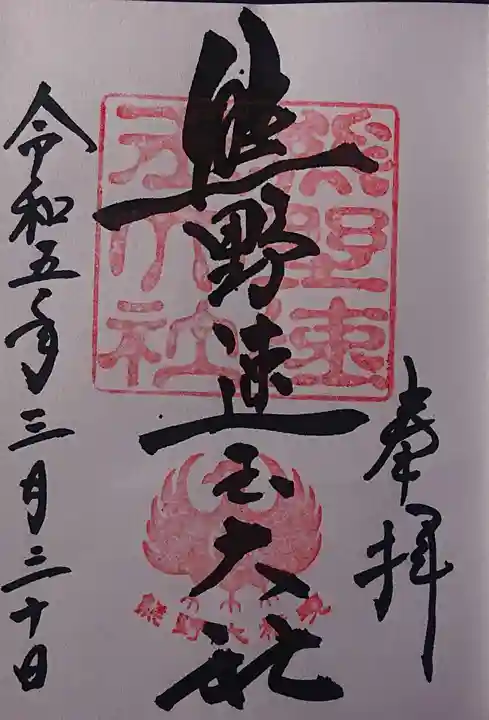 奉拝
熊野速玉大社
令和五年三月三十日
熊野速
玉大社
熊野大権現